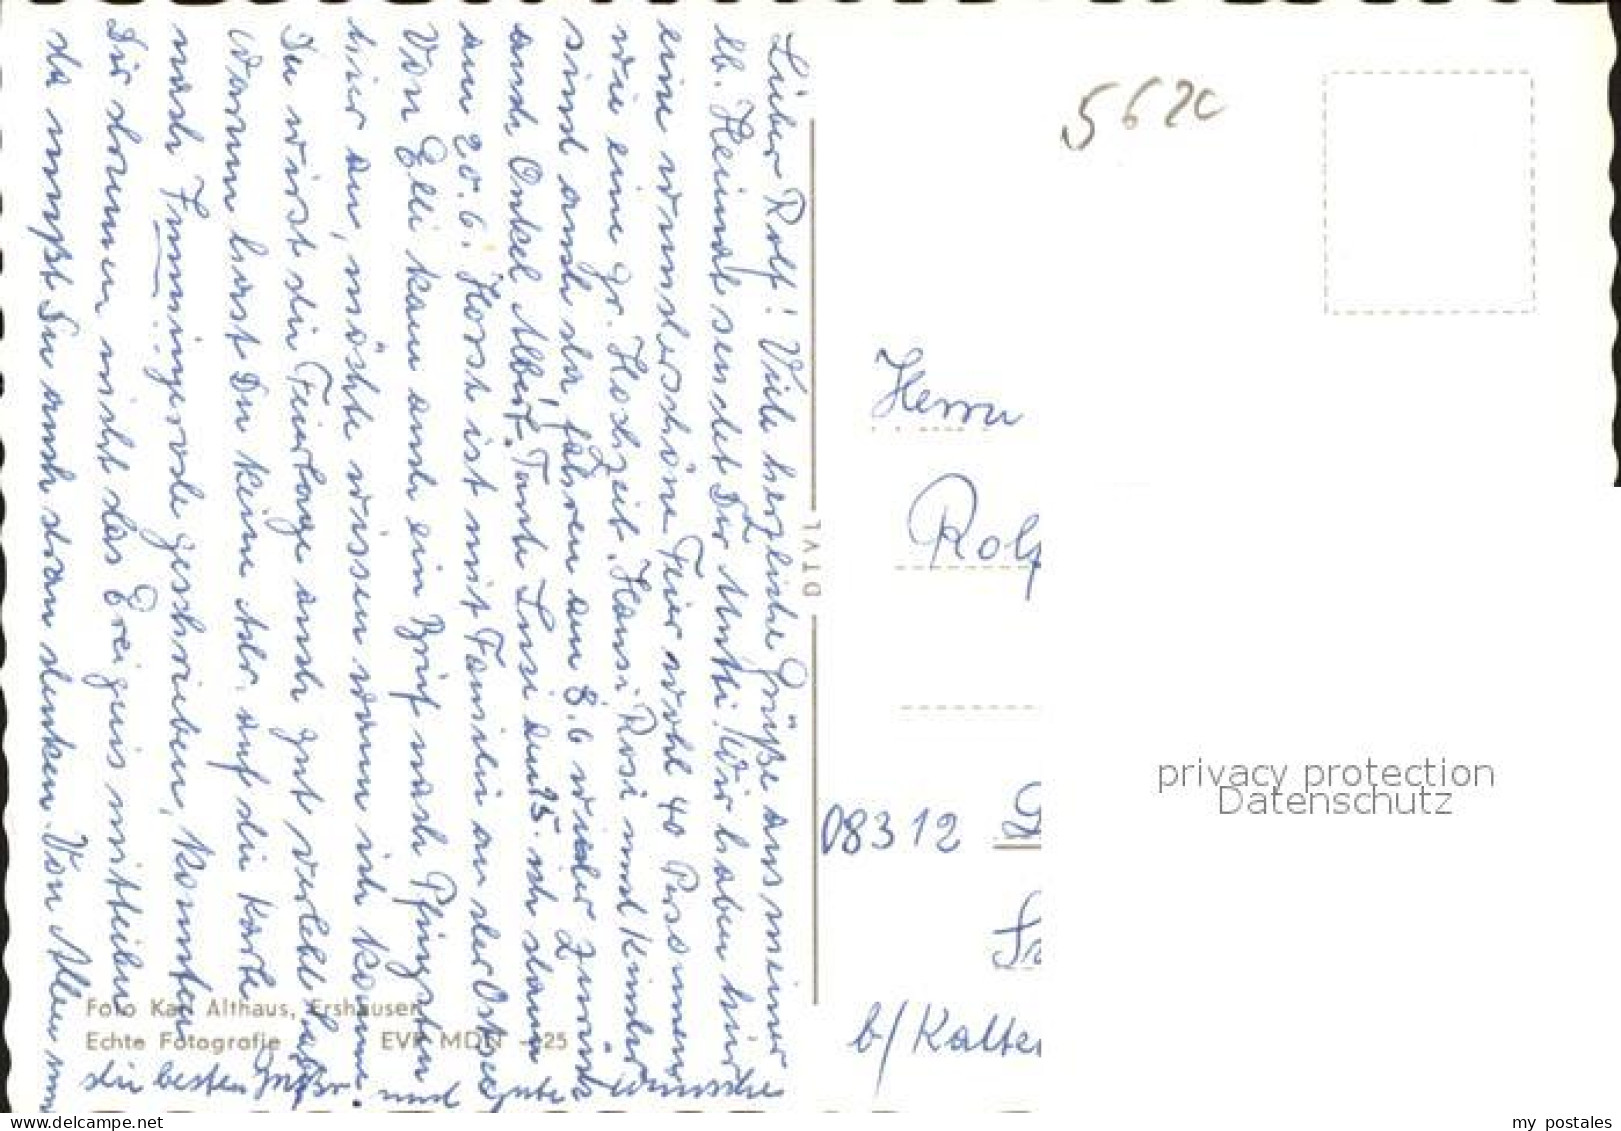 Lieber Rolf! Viele herzliche Grüße aus meiner
lb. Heimat sendet Dir Mutti. Wir haben hier
eine wunderschöne Feier wohl 40 Personen
wie eine gr. Hochzeit. Hansi Rosi und Kinder
sind auch da, fahren am 8.6 wieder zurück
auch Onkel Albert. Tante Lusi am 15. ich dann
am 20.6. Horst ist mit Familie an der Ostsee
Von Elli kam auch ein Brief nach Pfingsten
hier an, möchte wissen wann ich komme.
Du wirst die Feiertage auch gut verlebt haben
Warum hast Du keine Adr. auf die Karte
nach geschrieben, konnten
Dir drum nicht das Ereignis mitteilen
da mußt Du auch dran denken. Von Allen nun
die besten Grüße und gute Wünsche
Foto Karl Althaus, Ershausen
Echte Fotografie EVP MDN -,25
DTVL
5620
Herrn
Rolf
08312
b/ Kalte
privacy protection
Datenschutz
my postales